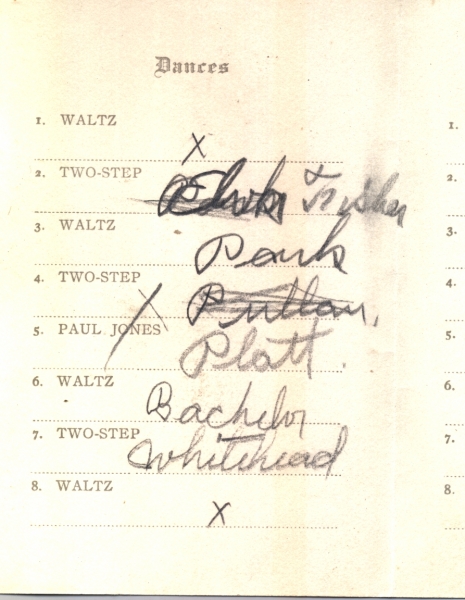 Dances
1. WALTZ
X
2. TWO-STEP
Fisher
3. WALTZ
Park
4. TWO-STEP
5. PAUL JONES X
Platt.
6. WALTZ
Bachelor
7. TWO-STEP
Whitehead
8. WALTZ
X
1.
2.
3.
4.
5.
6.
7.
8.